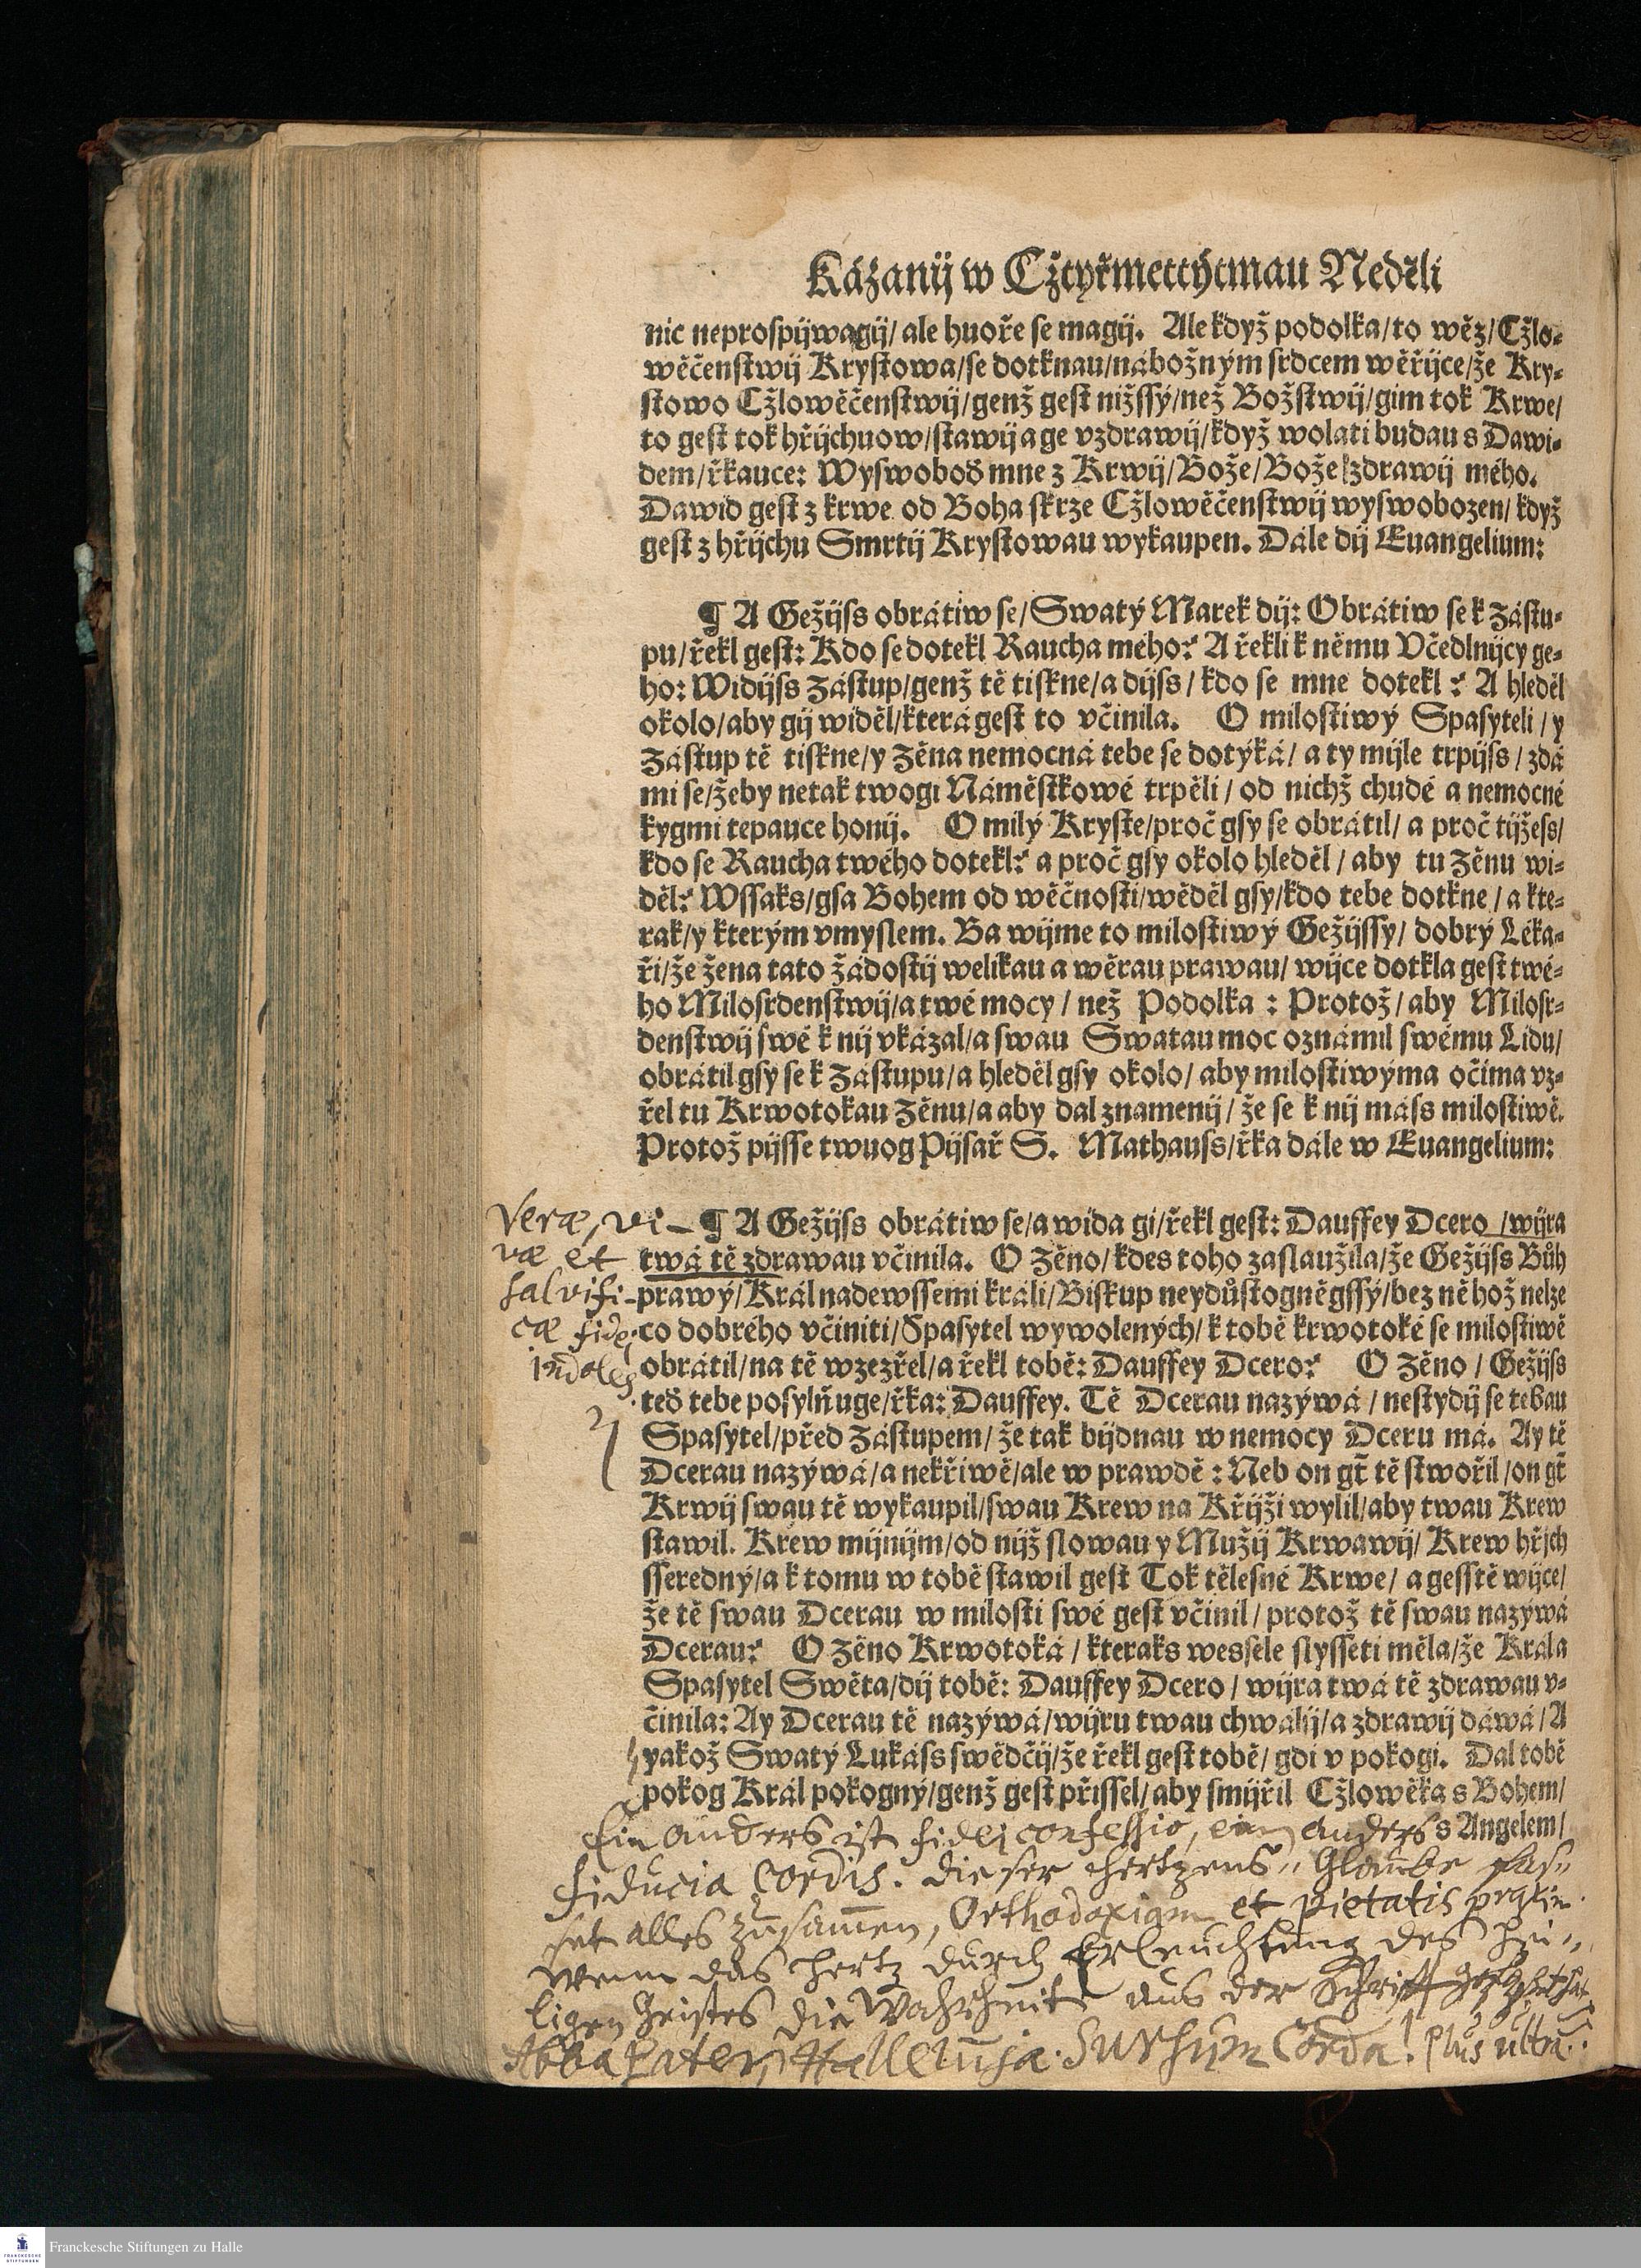 Kázanij w Cžtyřmettcýtmau Neděli
nic neprospijwagij/ ale huoře se magij. Ale když podolka/to wěz/Cžlo-
wěčenstwij Krystowa/se dotknau/nábožným srdcem wěřijce/že Kry-
stowo Cžlowěčenstwij/genž gest nižssý/než Božstwij/gim tok Krwe/
to gest tok hřijchuow/stawij a ge vzdrawij/když wolati budau s Dawi-
dem/řkauce: Wyswoboď mne z Krwij/Bože/Bože zdrawij mého.
Dawid gest z krwe od Boha skrze Cžlowěčenstwij wyswobozen/ když
gest z hřijchu Smrtij Krystowau wykaupen. Dále dij Euangelium:
¶ A Gežijss obrátiw se/Swatý Marek dij: Obrátiw se k Zástu-
pu/řekl gest: Kdo se dotekl Raucha mého? A řekli k němu Včedlnijcy ge-
ho: Widijss Zástup/genž tě tiskne/a dijss/ kdo se mne dotekl? A hleděl
okolo/aby gij widěl/která gest to včinila. O milostiwý Spasyteli/y
Zástup tě tiskne/y Zěna nemocná tebe se dotýká/ a ty mijle trpijss/ zdá
mi se/žeby netak twogi Náměstkowé trpěli/ od nichž chudé a nemocné
kygmi tepauce honij. O milý Kryste/proč gsy se obrátil/ a proč tijžess/
kdo se Raucha twého dotekl? a proč gsy okolo hleděl/ aby tu Zěnu wi-
děl? Wssaks/gsa Bohem od wěčnosti/wěděl gsy/kdo tebe dotkne/ a kte-
rak/y kterým vmyslem. Ba wijme to milostiwý Gežijssy/ dobrý Léka-
ři/že žena tato žádostij welikau a wěrau prawau/ wijce dotkla gest twé-
ho Milosrdenstwij/a twé mocy/ než Podolka: Protož/ aby Milosr-
denstwij swé k nij vkázal/a swau Swatau moc oznámil swému Lidu/
obrátil gsy se k Zástupu/a hleděl gsy okolo/ aby milostiwýma očima vz-
řel tu Krwotokau Zěnu/a aby dal znamenij/ že se k nij máss milostiwě.
Protož pijsse twuog Pijsař S. Mathauss/řka dále w Euangelium:
Veræ, vi- ¶ A Gežijss obrátiw se/a wida gi/řekl gest: Dauffey Dcero/wijra
væ et twá tě zdrawau včinila. O Zěno/kdes toho zaslaužila/že Gežijss Bůh
salvifi- prawý/Král nadewssemi králi/Biskup neydůstogněgssý/bez něhož nelze
cæ fidei co dobrého včiniti/Spasytel wywolených/k tobě krwotoké se milostiwě
indoles obrátil/na tě wzezřel/a řekl tobě: Dauffey Dcero? O Zěno/ Gežijss
teď tebe posylňuge/řka: Dauffey. Tě Dcerau nazýwá/ nestydij se tebau
Spasytel/před Zástupem/že tak bijdnau w nemocy Dceru má. Ay tě
Dcerau nazýwá/a nekřiwě/ale w prawdě: Neb on gt̄ tě stwořil/on gt̄
Krwij swau tě wykaupil/swau Krew na Křijži wylil/aby twau Krew
stawil. Krew mijnijm/od nijž slowau y Mužij Krwawij/ Krew hřjch
sseredný/a k tomu w tobě stawil gest Tok tělesné Krwe/ a gesstě wijce/
že tě swau Dcerau w milosti swé gest včinil/ protož tě swau nazýwá
Dcerau? O Zěno Krwotoká/ kteraks wessele slysseti měla/že Krále
Spasytel Swěta/dij tobě: Dauffey Dcero/ wijra twá tě zdrawau v-
činila: Ay Dcerau tě nazýwá/wijru twau chwálij/a zdrawij dáwá/A
yakož Swatý Lukáss swědčij/že řekl gest tobě/ gdi v pokogi. Dal tobě
pokog Král pokogný/genž gest přissel/aby smijřil Cžlowěka s Bohem/
s Angelem/
Ein anders ist fidei confessio, ein anders
fiducia cordis. dieser Hertzens-Glaube fas-
set alles zusam̄en, Orthodoxiam et pietatis praxin.
Wenn das Hertz durch Erleuchtung des Hei-
ligen Geistes die Wahrheit aus der Schrifft
Abba Pater, Halleluja. Sursum Corda! Plus ultra.
Franckesche Stiftungen zu Halle